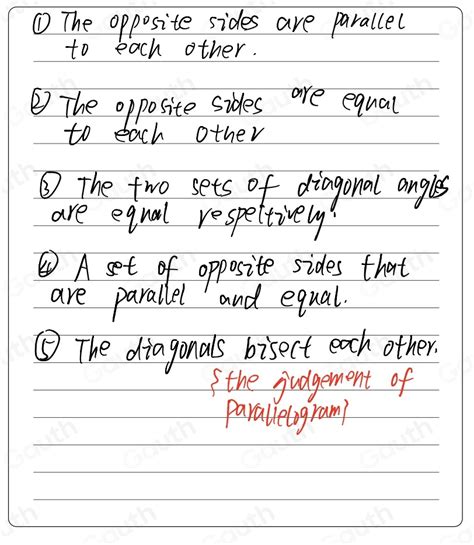 ① The opposite sides are parallel
to each other.
② The opposite sides are equal
to each other
③ The two sets of diagonal angles
are equal respeltively.
④ A set of opposite sides that
are parallel and equal.
⑤ The diagonals bisect each other.
{the judgement of
Parallelogram}